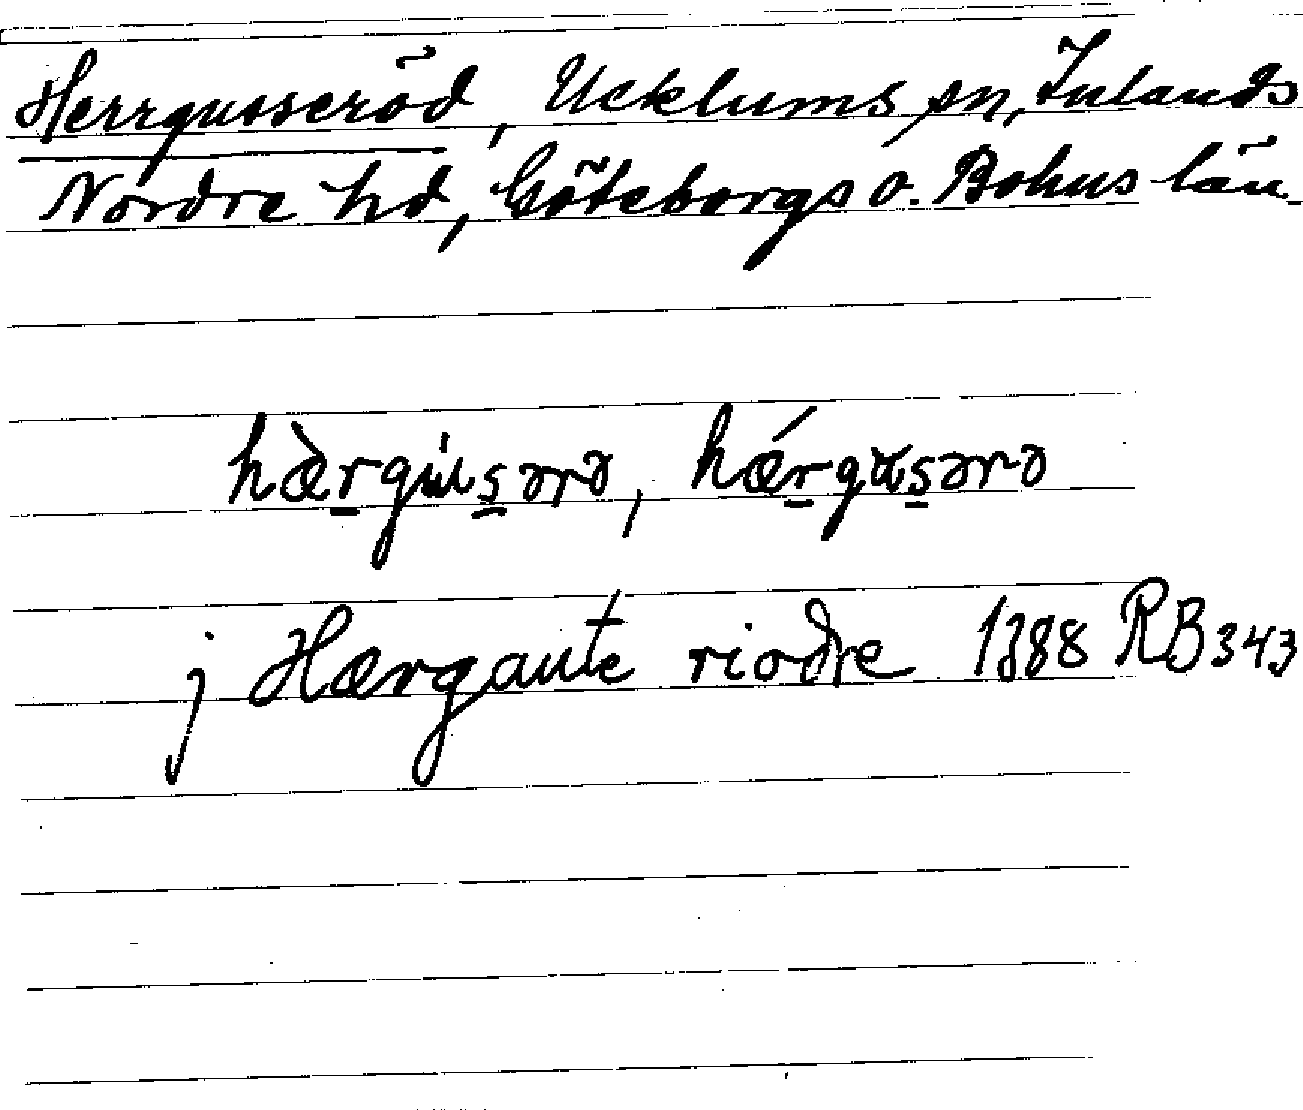 Herrgusseröd, Ucklums sn, Inlands
Nordre hd, Göteborgs o. Bohus län
hæ̀rgu̍s̠ərə, hǽrgus̠ərə
j Hærgaute riodre 1388 RB 343